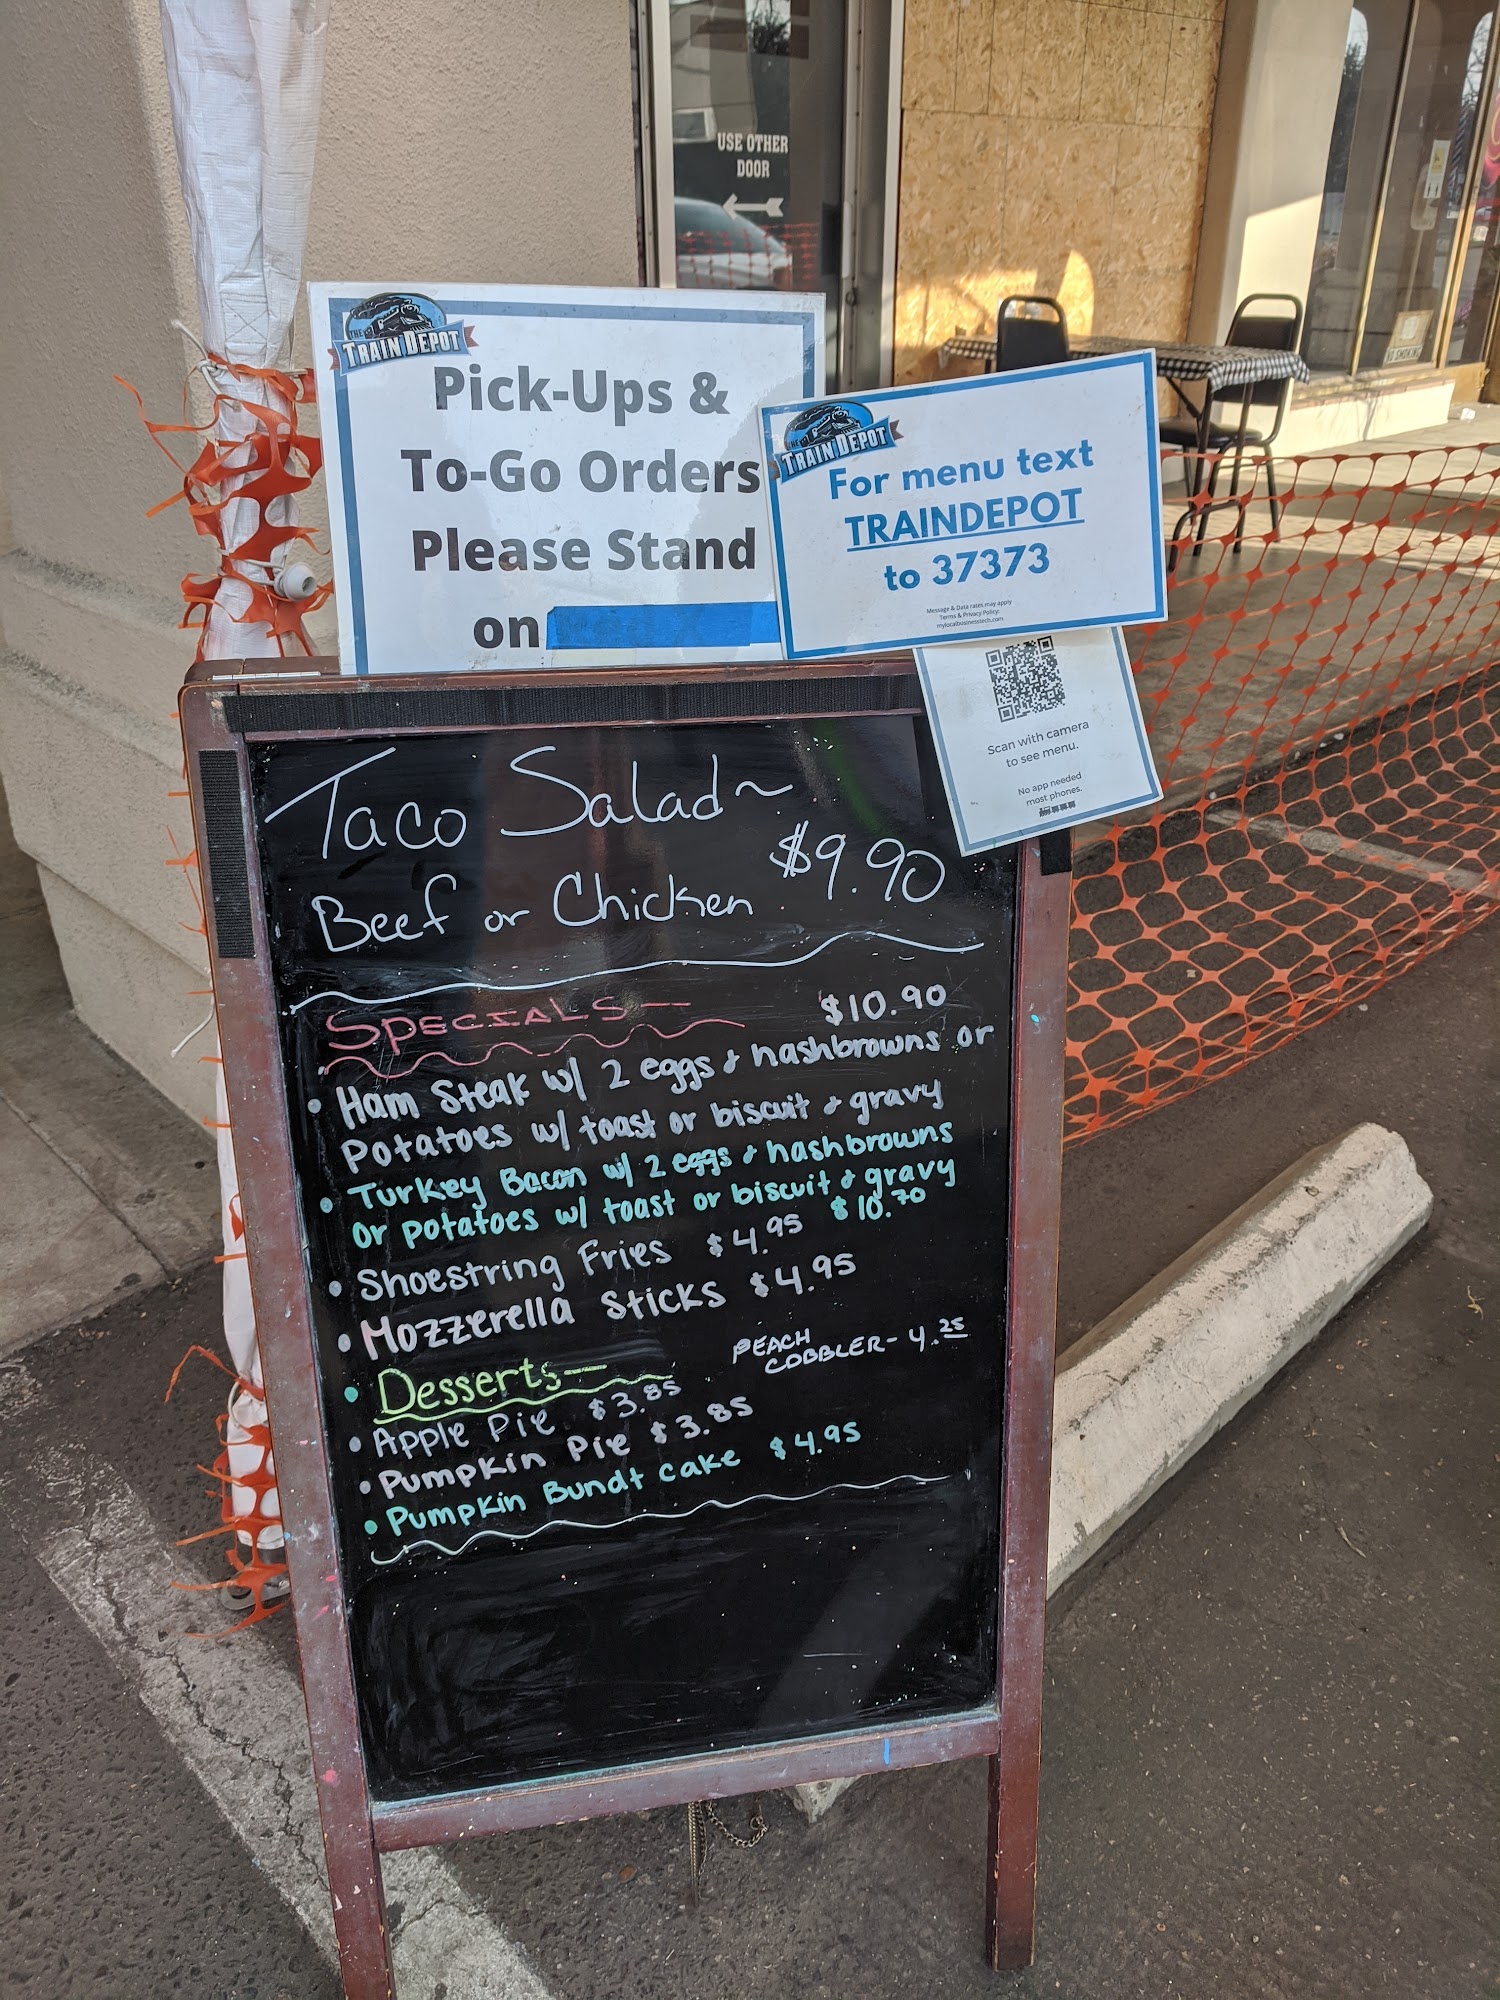 USE OTHER
DOOR
THE
TRAIN DEPOT
Pick-Ups &
To-Go Orders
Please Stand
on
THE
TRAIN DEPOT
For menu text
TRAINDEPOT
to 37373
Message & Data rates may apply
Terms & Privacy Policy:
mylocalbusinesstech.com
Scan with camera
to see menu.
No app needed
most phones.
Taco Salad~
Beef or Chicken $9.90
SPECIALS— $10.90
• Ham Steak w/ 2 eggs & hashbrowns or
Potatoes w/ toast or biscuit & gravy
• Turkey Bacon w/ 2 eggs & hashbrowns
or potatoes w/ toast or biscuit & gravy
$10.70
• Shoestring Fries $4.95
• Mozzerella Sticks $4.95
PEACH
COBBLER- 4.25
• Desserts—
• Apple Pie $3.85
• Pumpkin Pie $3.85
• Pumpkin Bundt cake $4.95
NO SMOKING